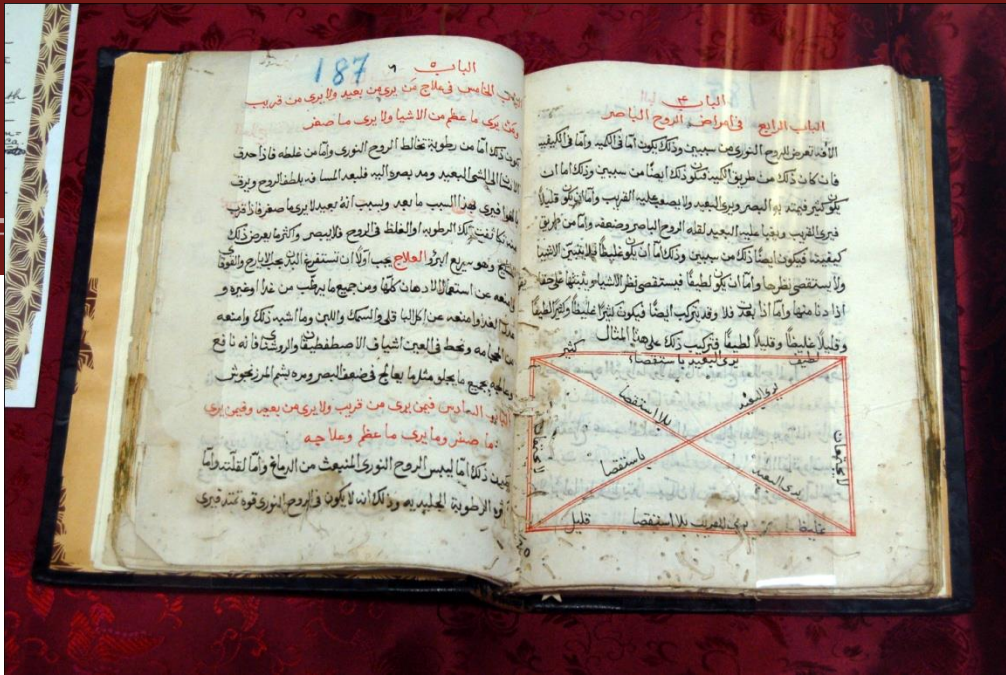 الباب ٤
الباب الرابع في امراض الروح الباصر
الآفة تعرض للروح النوري من سببين وذلك يكون اما في الكمية واما في الكيفية
فان كان ذلك من طريق الكمية فيكون ذلك ايضًا من سببين وذلك اما ان
يكون كثير فيمتد به البصر ويرى البعيد ولا يصعب عليه القريب واما ان يكون قليلاً
فيرى القريب ويخفا عليه البعيد لقلة الروح الباصر وضعفه واما من طريق
كيفيتها فيكون ايضًا ذلك من سببين وذلك اما ان يكون غليظًا فلا يتبين الاشيا
ولا يستقصي نظرها واما ان يكون لطيفًا فيستقصي نظر الاشياء ويثبتها على حقه
اذا دنا منها واما اذا بعد فلا وقد يتركب ايضًا فيكون كثيرًا غليظًا وكثيرًا لطيفًا
وقليلاً غليظًا وقليلاً لطيفًا وتركيب ذلك على هذا المثال
لطيف يرى البعيد باستقصاء كثير
يرى البعيد بلا استقصا
لا يجتمعان
لا يجتمعان
باستقصا
غليظ يرى القريب بلا استقصا قليل
187
الباب ٥
الباب الخامس في علاج من يرى من بعيد ولا يرى من قريب
ومن يرى ما عظم من الاشيا ولا يرى ما صغر
يكون ذلك اما من رطوبة تخالط الروح النوري واما من غلظه فاذا حدق
الانسان الى الشي البعيد ومد بصره اليه فلبعد المسافه يلطف الروح ويرق
فيرى لهذا السبب ما بعد وسبب انه بعيد لا يرى ما صغر فاذا قرب
تكاثفت تلك الرطوبه او الغلظ في الروح فلا يبصر واكثر ما يعرض ذلك
وهو سريع البرؤ العلاج يجب اولاً ان تستفرغ البدن بحب الايارج والقوقاي
وامنعه عن استعمال الادهان كلها ومن جميع ما يرطب من غذا وغيره
وامنعه عن اكل الباقلي والسمك واللبن وما اشبه ذلك وامنعه
من الحجامه وتحط في العين اشياف الاصطفطيقان والروشناي فانه نافع
وعالجه بجميع ما يجلو مثل ما يعالج في ضعف البصر ومره بشم المرزنجوش
الباب السادس فيمن يرى من قريب ولا يرى من بعيد وفيمن يرى
ما صغر وما يرى ما عظم وعلاجه
يكون ذلك اما ليبس الروح النوري المنبعث من الدماغ واما لقلته واما
الرطوبة الجليديه وذلك انه لا يكون في الروح النوري قوه تمتد فيرى